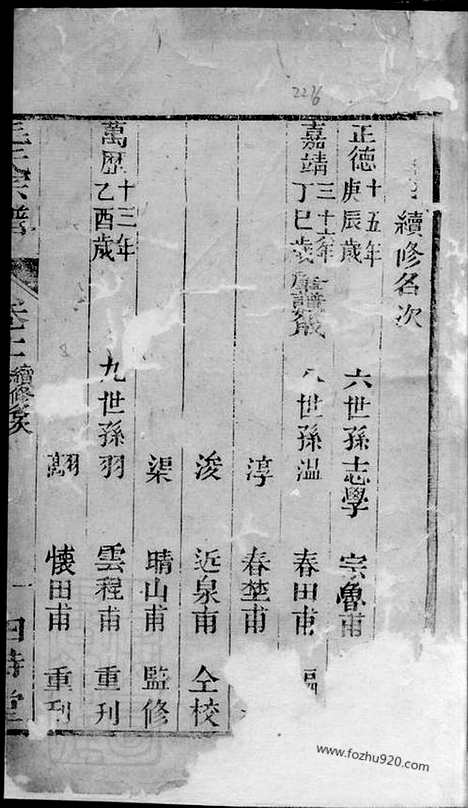 續修名次
正德十五年庚辰歲 六世孫志學 宗魯甫
嘉靖三十六年丁巳歲 八世孫温 春田甫 編
淳 春埜甫
浚 近泉甫 仝校
渠 晴山甫 監修
萬歷十三年乙酉歲 九世孫羽 雲程甫 重刊
翮 懷田甫 重刊
宗譜 續修 一 四時堂
2216
www.fozhu920.com